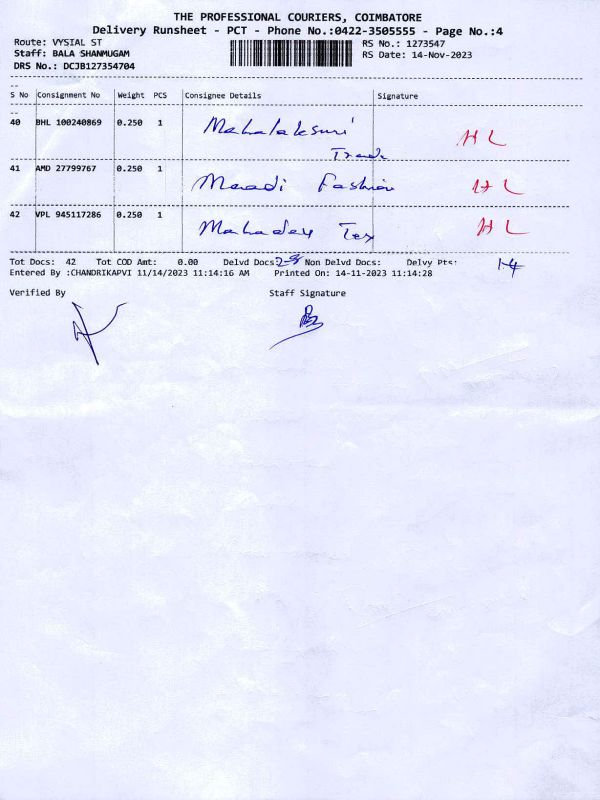 THE PROFESSIONAL COURIERS, COIMBATORE
Delivery Runsheet - PCT - Phone No.:0422-3505555 - Page No.:4
Route: VYSIAL ST RS No.: 1273547
Staff: BALA SHANMUGAM RS Date: 14-Nov-2023
DRS No.: DCJB127354704
S No Consignment No Weight PCS Consignee Details Signature
40 BHL 100240869 0.250 1 Mahalaksmi Trade HL
41 AMD 27799767 0.250 1 Maadi Fashion HL
42 VPL 945117286 0.250 1 Mahadev Tex HL
Tot Docs: 42 Tot COD Amt: 0.00 Delvd Docs: Non Delvd Docs: Delvy Pts: 14
Entered By :CHANDRIKAPVI 11/14/2023 11:14:16 AM Printed On: 14-11-2023 11:14:28
Verified By Staff Signature